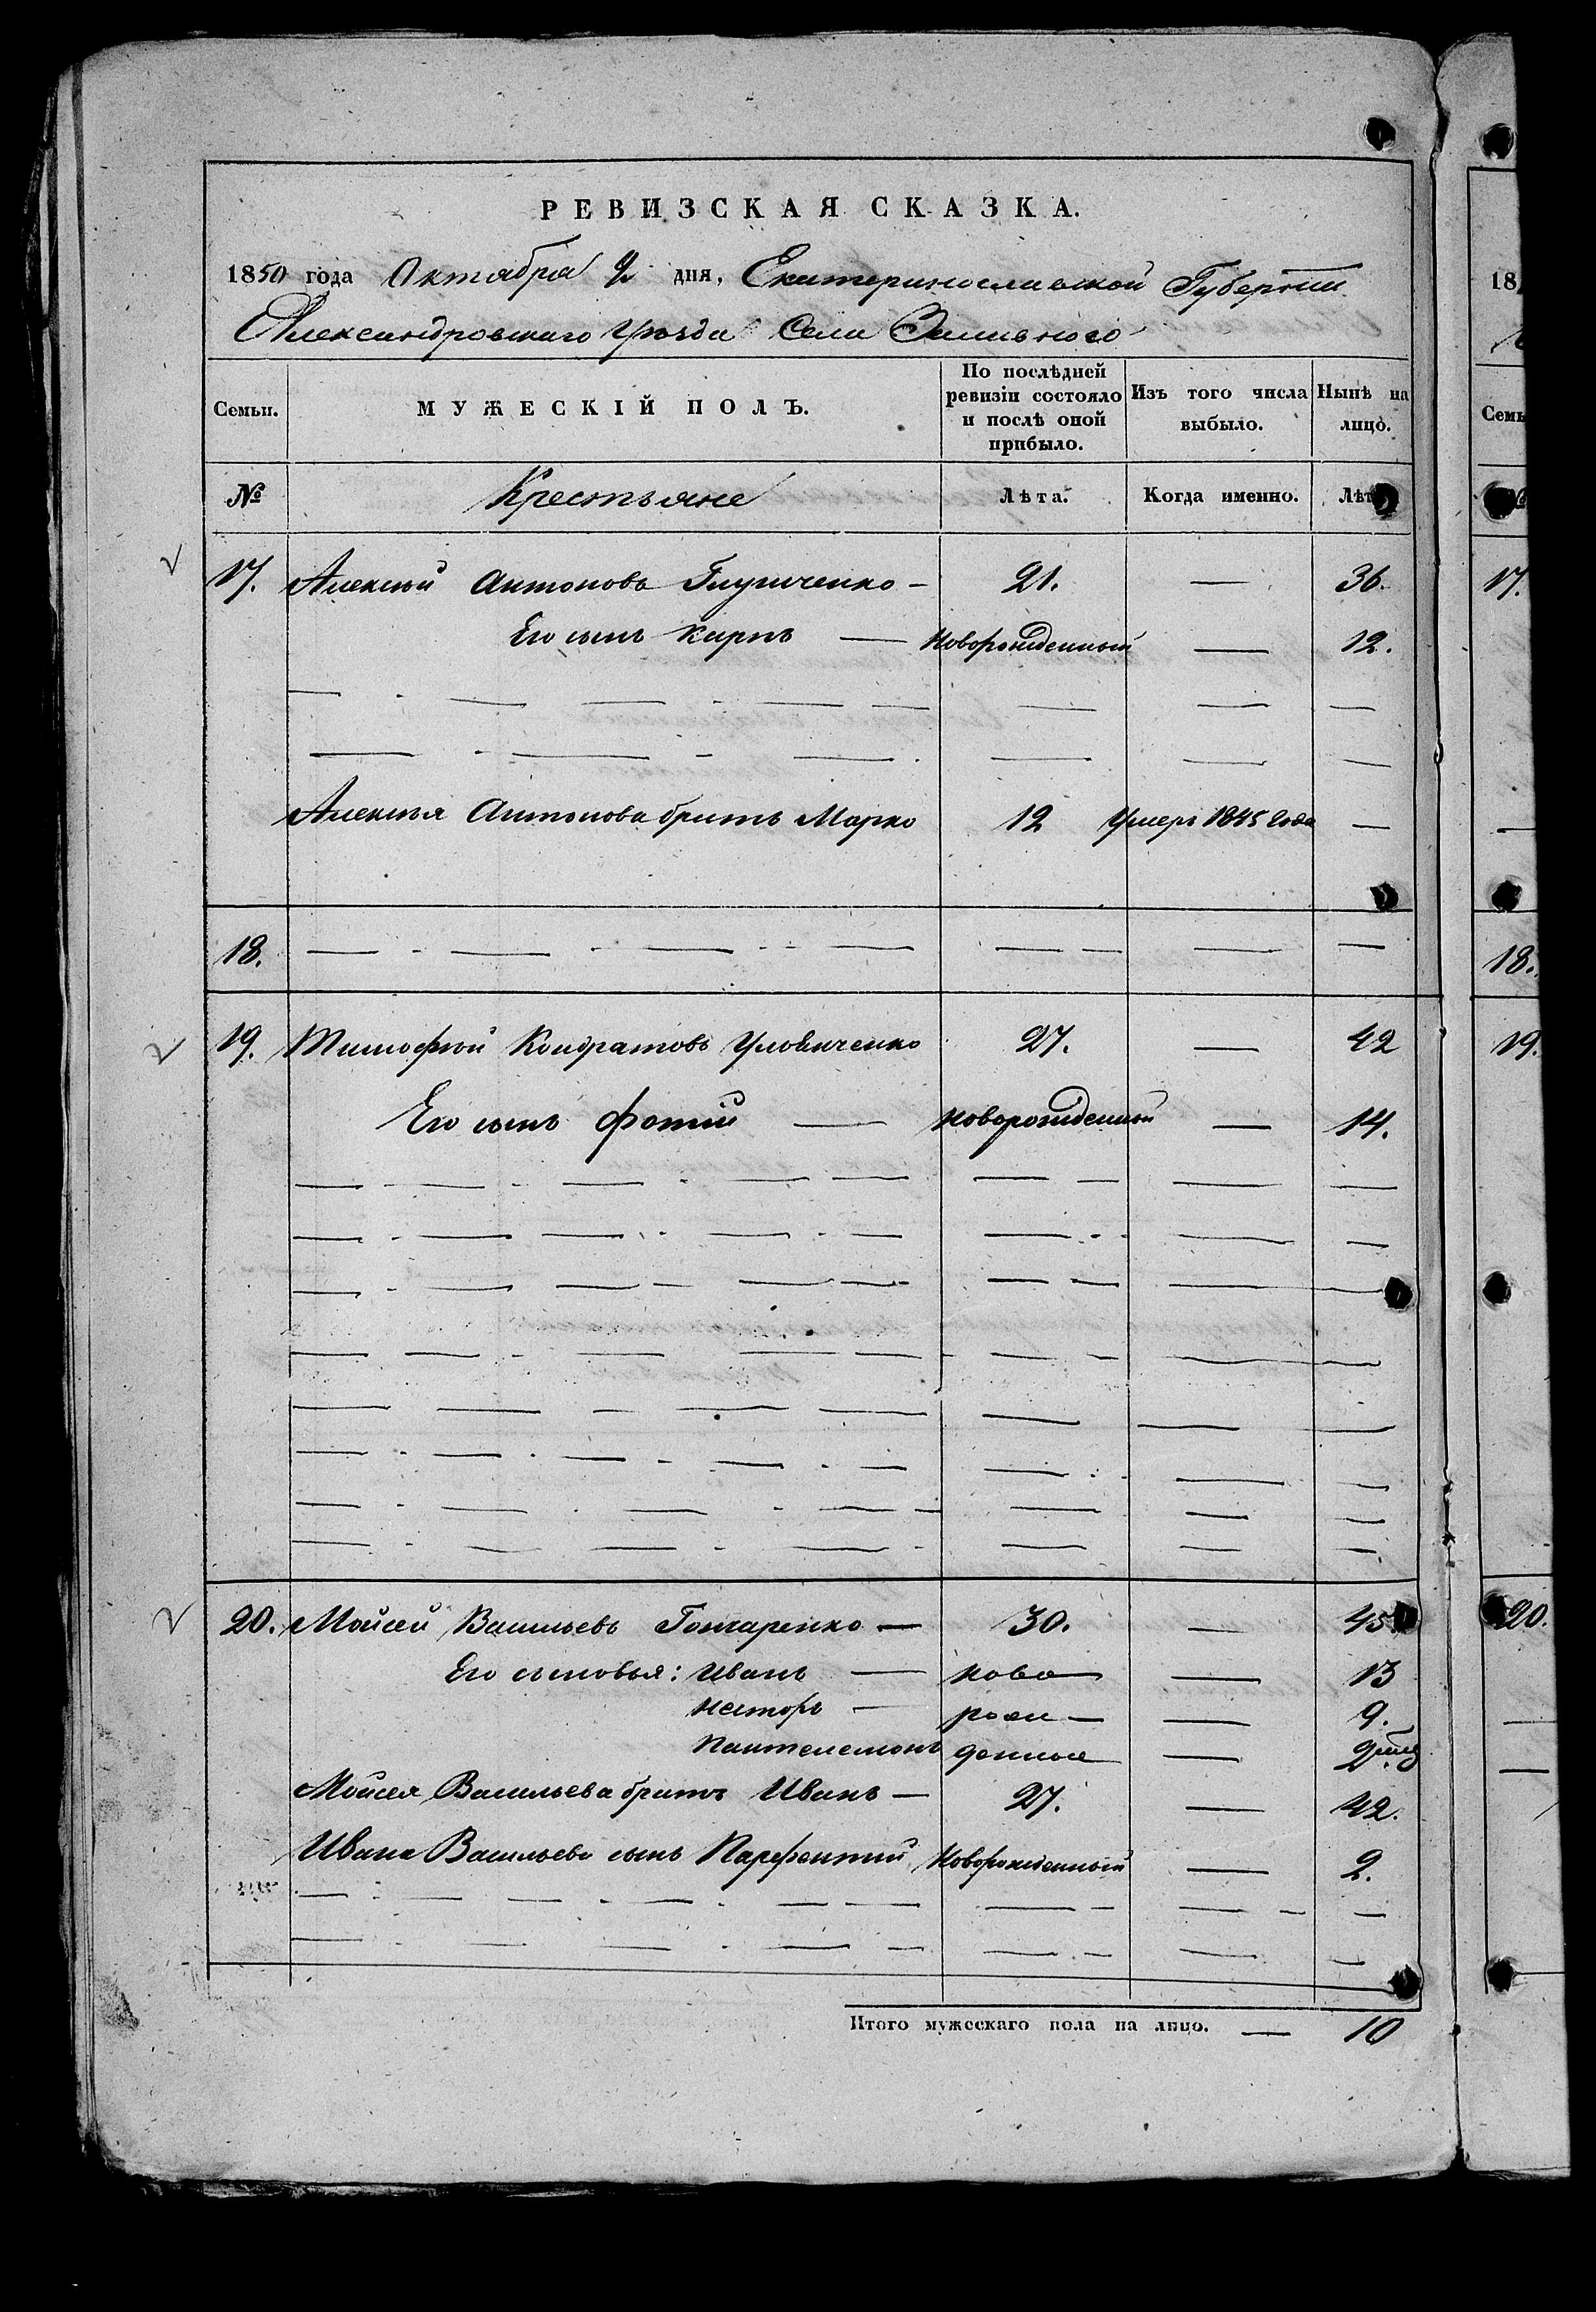 РЕВИЗСКАЯ СКАЗКА.
1850 года Октября 2 дня, Екатеринославской Губернии
Александровскаго Уѣзда Села Заливного
Семьи. МУЖЕСКІЙ ПОЛЪ. По послѣдней ревизіи состояло и послѣ оной прибыло. Изъ того числа выбыло. Нынѣ на лицо.
№ Крестьяне Лѣта. Когда именно. Лѣт
17. Алексѣй Антоновъ — 21. — 36.
Его сынъ Карпъ — Новорожденный — 12.
Алексѣя Антонова братъ Марко 12 Умеръ 1845 года —
18.
19. Тимофѣй Кондратовъ 27. — 42
Его сынъ Фотій — новорожденный — 14.
20. Мойсей Васильевъ Гончаренко — 30. — 45
Его сыновья: Иванъ — ново — 13
Несторъ — рож — 9.
Пантелемонъ денные —
Мойсея Васильева братъ Иванъ — 27. — 42.
Ивана Васильева сынъ Парфентий Новорожденный — 2.
Итого мужескаго пола на лицо. — 10
18
Семь
17.
18.
19.
20.